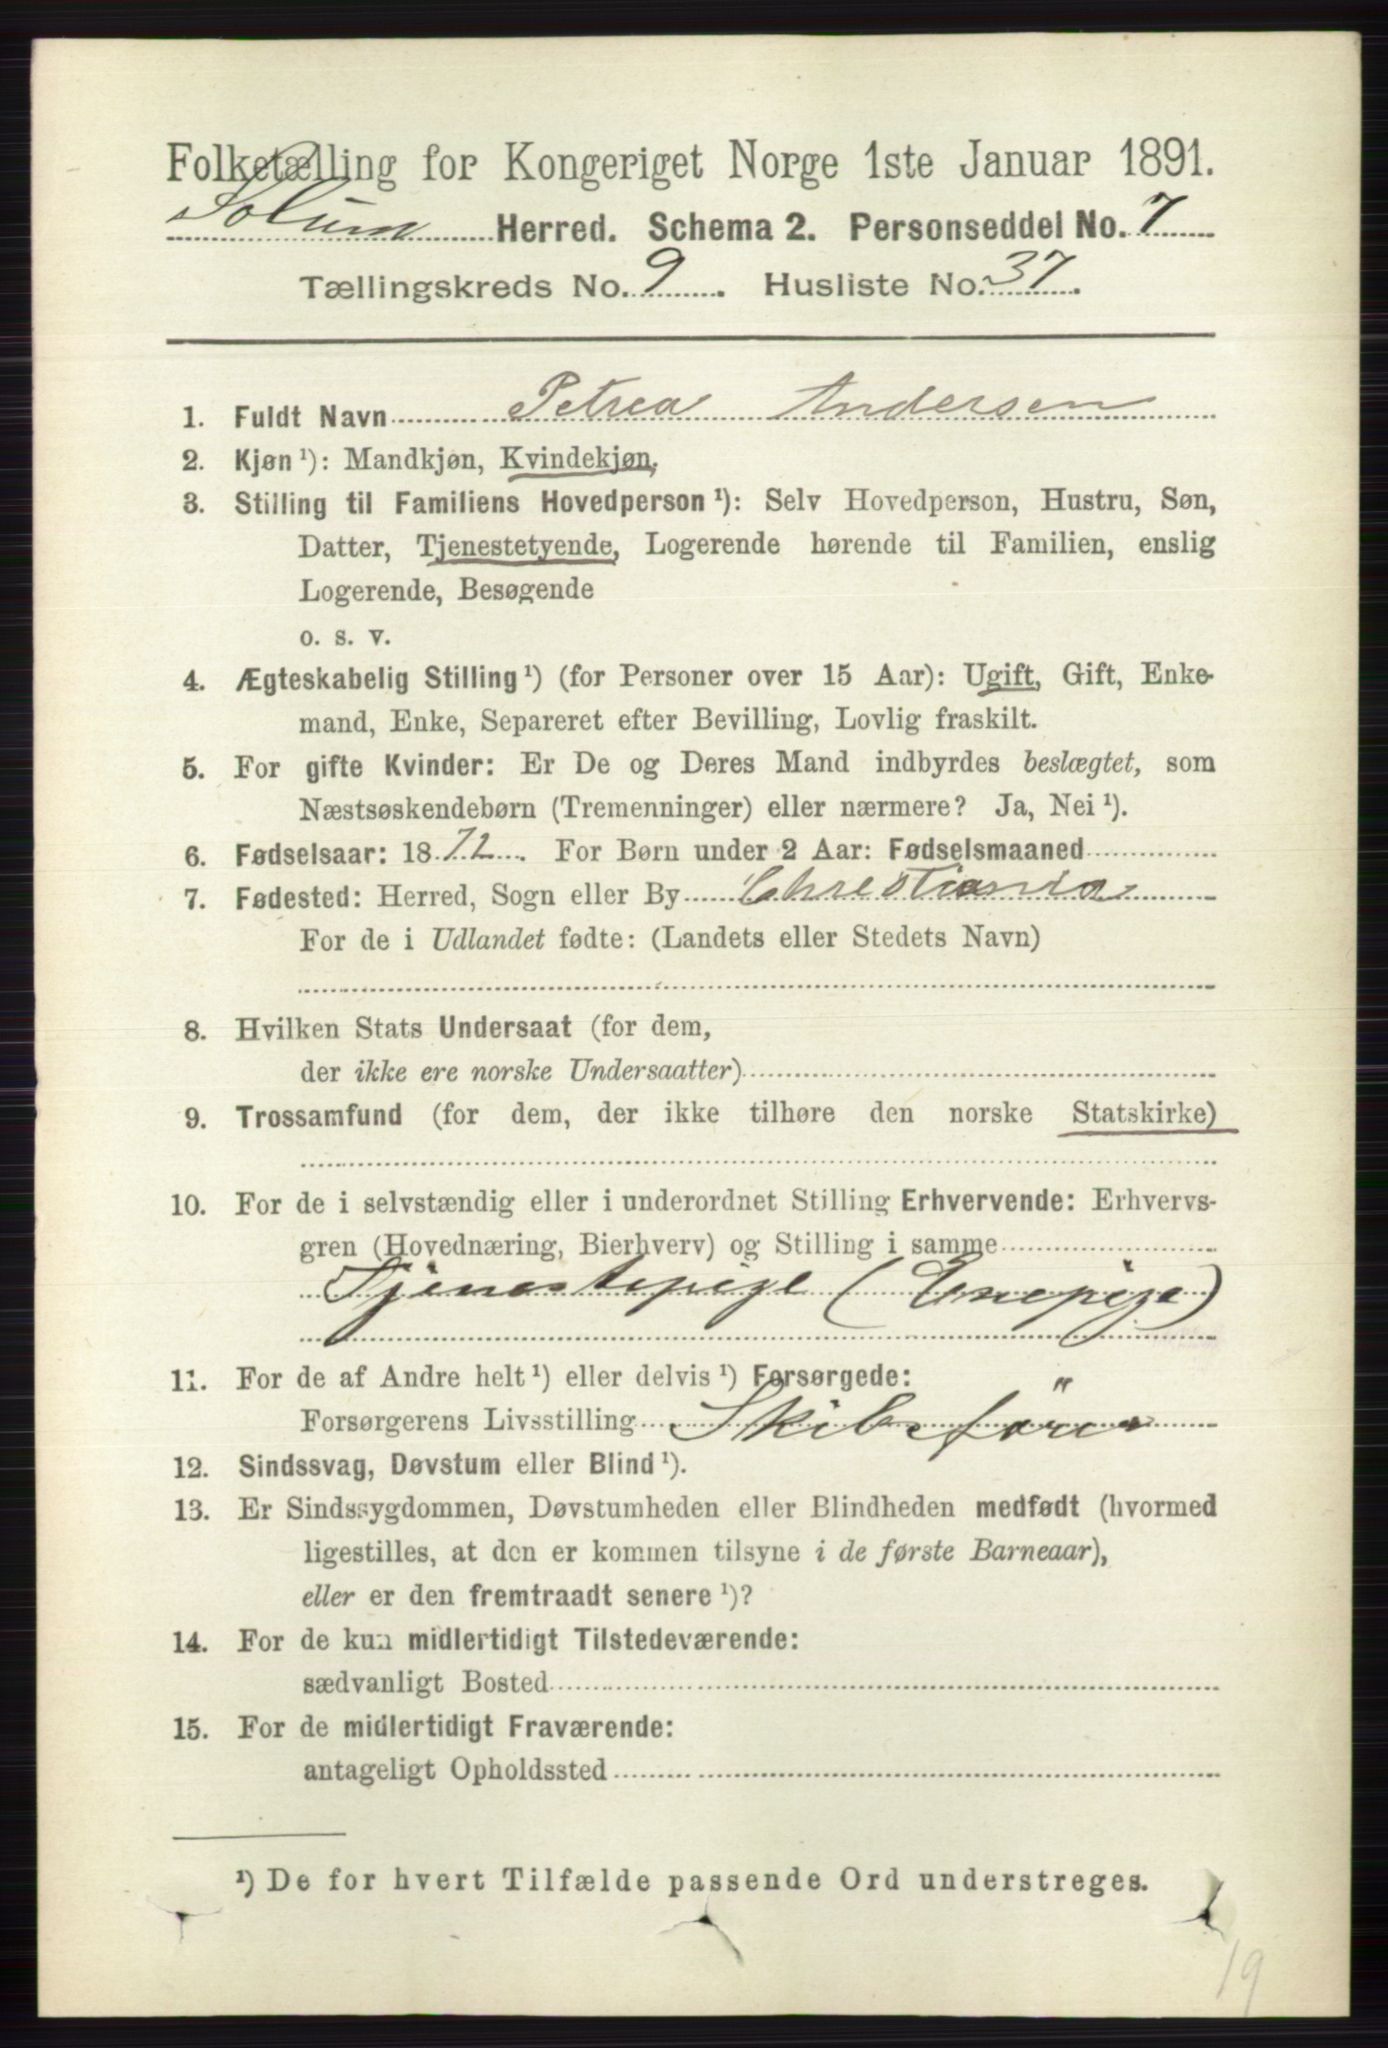 Folketælling for Kongeriget Norge 1ste Januar 1891.
Solum Herred. Schema 2. Personseddel No. 7
Tællingskreds No. 9. Husliste No. 37.
1. Fuldt Navn Petrea Andersen
2. Kjøn ¹): Mandkjøn, Kvindekjøn,
3. Stilling til Familiens Hovedperson ¹): Selv Hovedperson, Hustru, Søn,
Datter, Tjenestetyende, Logerende hørende til Familien, enslig
Logerende, Besøgende
o. s. v.
4. Ægteskabelig Stilling ¹) (for Personer over 15 Aar): Ugift, Gift, Enke-
mand, Enke, Separeret efter Bevilling, Lovlig fraskilt.
5. For gifte Kvinder: Er De og Deres Mand indbyrdes beslægtet, som
Næstsøskendebørn (Tremenninger) eller nærmere? Ja, Nei ¹).
6. Fødselsaar: 1872. For Børn under 2 Aar: Fødselsmaaned
7. Fødested: Herred, Sogn eller By Christiania
For de i Udlandet fødte: (Landets eller Stedets Navn)
8. Hvilken Stats Undersaat (for dem,
der ikke ere norske Undersaatter)
9. Trossamfund (for dem, der ikke tilhøre den norske Statskirke)
10. For de i selvstændig eller i underordnet Stilling Erhvervende: Erhvervs-
gren (Hovednæring, Bierhverv) og Stilling i samme
Tjenestepige (Enepige)
11. For de af Andre helt ¹) eller delvis ¹) Forsørgede:
Forsørgerens Livsstilling Skibsförer
12. Sindssvag, Døvstum eller Blind ¹).
13. Er Sindssygdommen, Døvstumheden eller Blindheden medfødt (hvormed
ligestilles, at den er kommen tilsyne i de første Barneaar),
eller er den fremtraadt senere ¹)?
14. For de kun midlertidigt Tilstedeværende:
sædvanligt Bosted
15. For de midlertidigt Fraværende:
antageligt Opholdssted
¹) De for hvert Tilfælde passende Ord understreges.
19